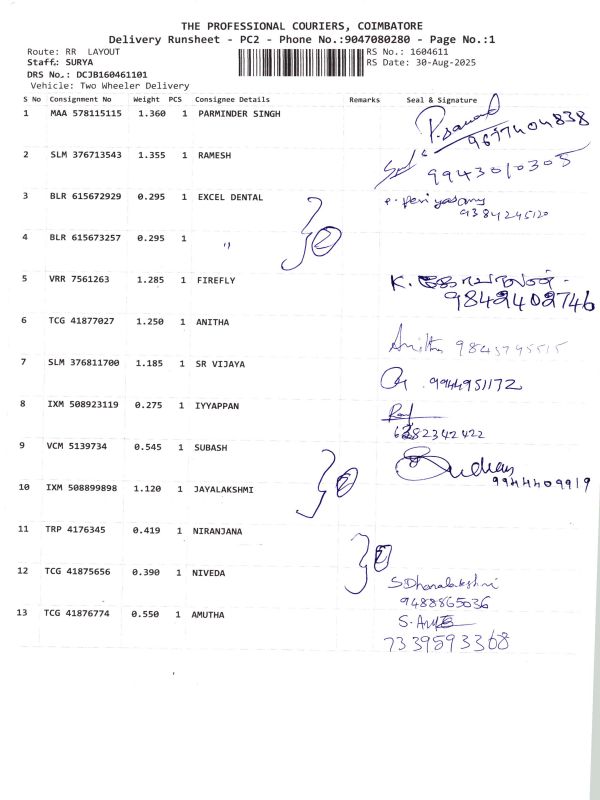 THE PROFESSIONAL COURIERS, COIMBATORE
Delivery Runsheet - PC2 - Phone No.:9047080280 - Page No.:1
Route: RR LAYOUT RS No.: 1604611
Staff.: SURYA RS Date: 30-Aug-2025
DRS No.: DCJB160461101
Vehicle: Two Wheeler Delivery
S No Consignment No Weight PCS Consignee Details Remarks Seal & Signature
1 MAA 578115115 1.360 1 PARMINDER SINGH
9677404838
2 SLM 376713543 1.355 1 RAMESH
9943010305
3 BLR 615672929 0.295 1 EXCEL DENTAL
9384245120
4 BLR 615673257 0.295 1 "
2
5 VRR 7561263 1.285 1 FIREFLY
K.
9842402746
6 TCG 41877027 1.250 1 ANITHA
Anitha 9845795515
7 SLM 376811700 1.185 1 SR VIJAYA
9944951172
8 IXM 508923119 0.275 1 IYYAPPAN
6382342422
9 VCM 5139734 0.545 1 SUBASH
9944409919
10 IXM 508899898 1.120 1 JAYALAKSHMI
2
11 TRP 4176345 0.419 1 NIRANJANA
2
12 TCG 41875656 0.390 1 NIVEDA
S Dhanalakshmi
9488865036
13 TCG 41876774 0.550 1 AMUTHA
7339593368